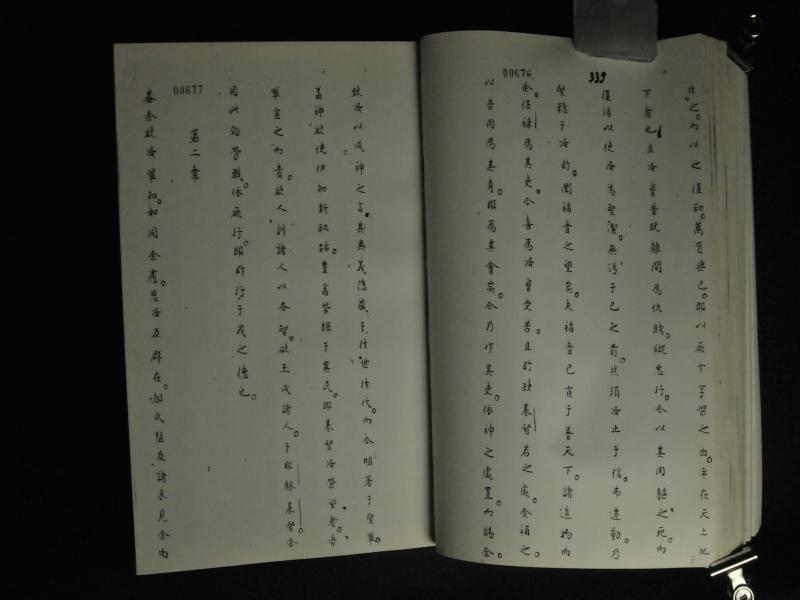 00676
339
信之。內以之復和。萬有與己。即以厥十字架之血。平在天上地
下者也且汝曹昔既離間為仇賤。縱惡行。今以其肉軀之死。而
復活以使汝為聖潔。無污于己之前。然須汝止于信。弗違動乃
堅穩于汝所聞福音之望矣。夫福音已宣于普天下。諸造物而
余。保祿為其吏。今喜為汝曹受苦。且所缺基督若之處。余補之
以吾肉為其身。即為其會矣。今乃作其吏。依神之處置。而賜余
00677
致汝以成神之言。其奧義隱藏于往世往代。而今明著于聖輩。
蓋神欲使伊知斯秘跡。豊富榮擺于異民。即基督汝榮望者。吾
輩宣之而責敎人訓諸人以各智。欲玉成諸人。于耶穌基督余
因此効勞戰。依厥行。即所行于我之德也。
第二章
蓋余欲汝輩知。如何余慮。思汝及群在。郝氏隉及諸未見余肉